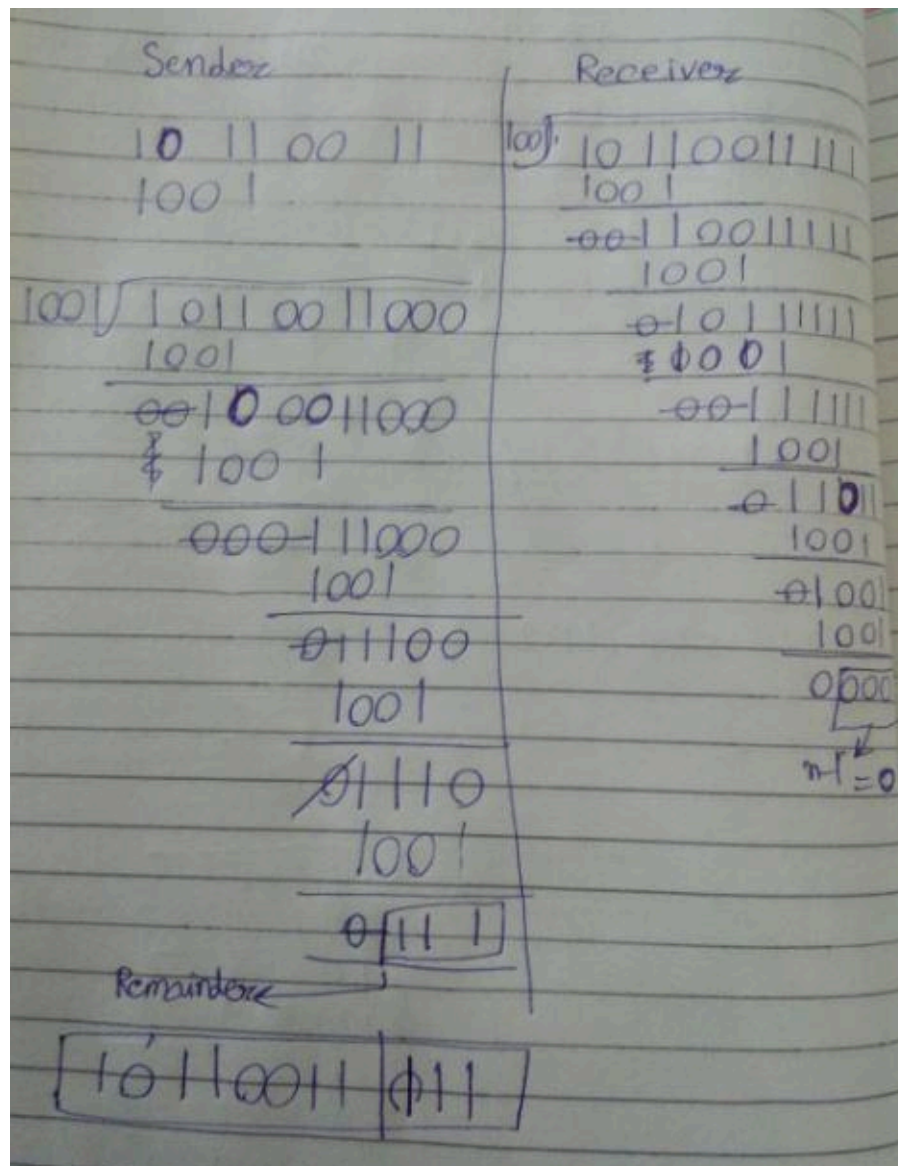 Sender
10 11 00 11
1001
1001 10110011000
1001
0010 0011000
1001
000111000
1001
011100
1001
01110
1001
0111
Remainder
10110011
Receiver
1001 10110011111
1001
00110011111
1001
010111111
1001
00111111
1001
011011
1001
01001
1001
0000
n-1 = 0